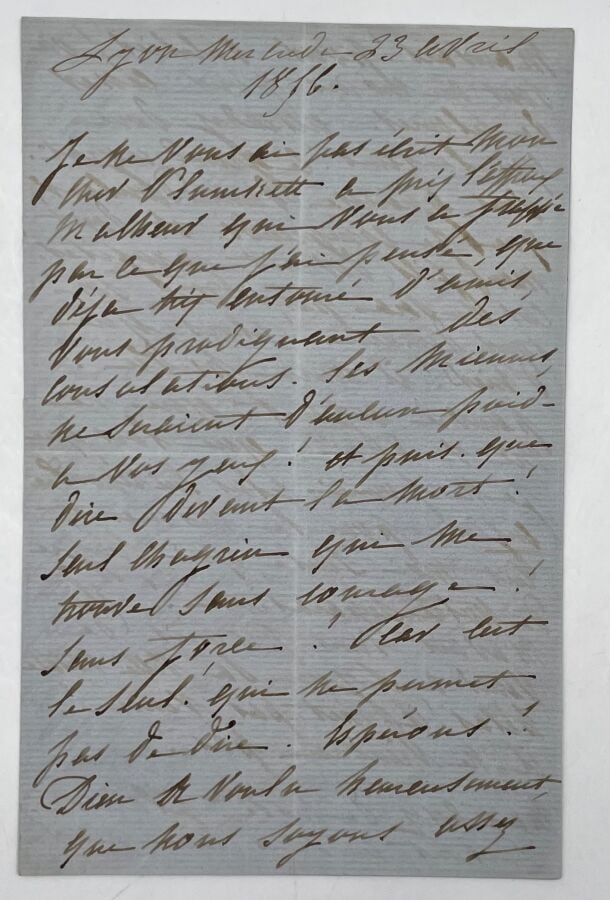 Lyon Mercredi 23 avril
1856.
Je ne vous ai pas écrit mon
cher Plunkett a près l'affreux
malheur qui vous a frappé
par ce que j'ai pensé, que
déja très entouré d'amis,
vous prodiguant des
consolations. les miennes,
ne seraient d'aucun poid
a vos yeux! et puis. que
dire devant la mort!
seul chagrin qui me
trouve sans courage!
sans force! Car c'est
le seul. qui ne permet
pas de dire. Espérons!
Dieu a voulu heureusement,
que nous soyons assez